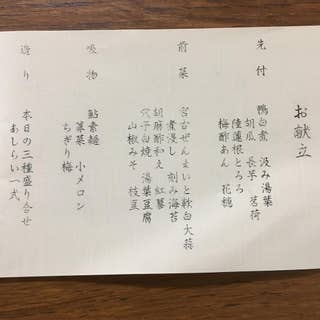 お献立
先付
鴨白煮 汲み湯葉
胡瓜 長芋 茗荷
陸蓮根とろろ
梅酢あん 花穂
前菜
宮古ぜんまいと軟白大蒜
煮浸し 刻み海苔
胡麻酢和え 紅蓼
穴子白焼 湯葉豆腐
山椒みそ 枝豆
吸物
鮎素麺
蓴菜 小メロン
ちぎり梅
造り
本日の三種盛り合せ
あしらい一式